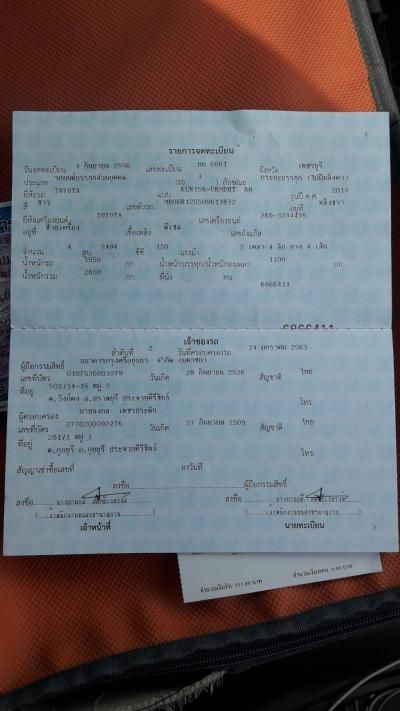 6
รายการจดทะเบียน
วันจดทะเบียน 4 กันยายน 2556 เลขทะเบียน บม 6661 จังหวัด เพชรบุรี
ประเภท รถยนต์บรรทุกส่วนบุคคล (รย 3 ) ลักษณะ กระบะบรรทุก (ไม่มีหลังคา)
ยี่ห้อรถ TOYOTA แบบ รุ่นปี ค.ศ. 2013
สี ขาว เลขตัวรถ อยู่ที่
ยี่ห้อเครื่องยนต์ TOYOTA เลขเครื่องยนต์ 2KD-S234435
อยู่ที่ ซ้ายเครื่อง เชื้อเพลิง ดีเซล เลขถังแก๊ส
จำนวน 4 สูบ 2494 ซีซี 120 แรงม้า 2 เพลา 4 ล้อ ยาง 4 เส้น
น้ำหนักรถ 1550 กก. น้ำหนักบรรทุก/น้ำหนักลงเพลา 1100 กก.
น้ำหนักรวม 2650 กก. ที่นั่ง คน
6966411
6966411
เจ้าของรถ
ลำดับที่ 2 วันที่ครอบครองรถ 24 มกราคม 2563
ผู้ถือกรรมสิทธิ์ ธนาคารกรุงศรีอยุธยา จำกัด (มหาชน)
เลขที่บัตร 0107536001079 วันเกิด 28 กันยายน 2536 สัญชาติ ไทย
ที่อยู่ 502/14-15 หมู่ 2
โทร.
ผู้ครอบครอง
เลขที่บัตร 3770200092276 วันเกิด 27 กันยายน 2509 สัญชาติ ไทย
ที่อยู่ 201/1 หมู่ 1
ต.กุยบุรี อ.กุยบุรี ประจวบคีรีขันธ์ โทร.
สัญญาเช่าซื้อเลขที่ ลงวันที่
ลงชื่อ ผู้ถือกรรมสิทธิ์
ลงชื่อ ลงชื่อ
เจ้าหน้าที่ นายทะเบียน
7